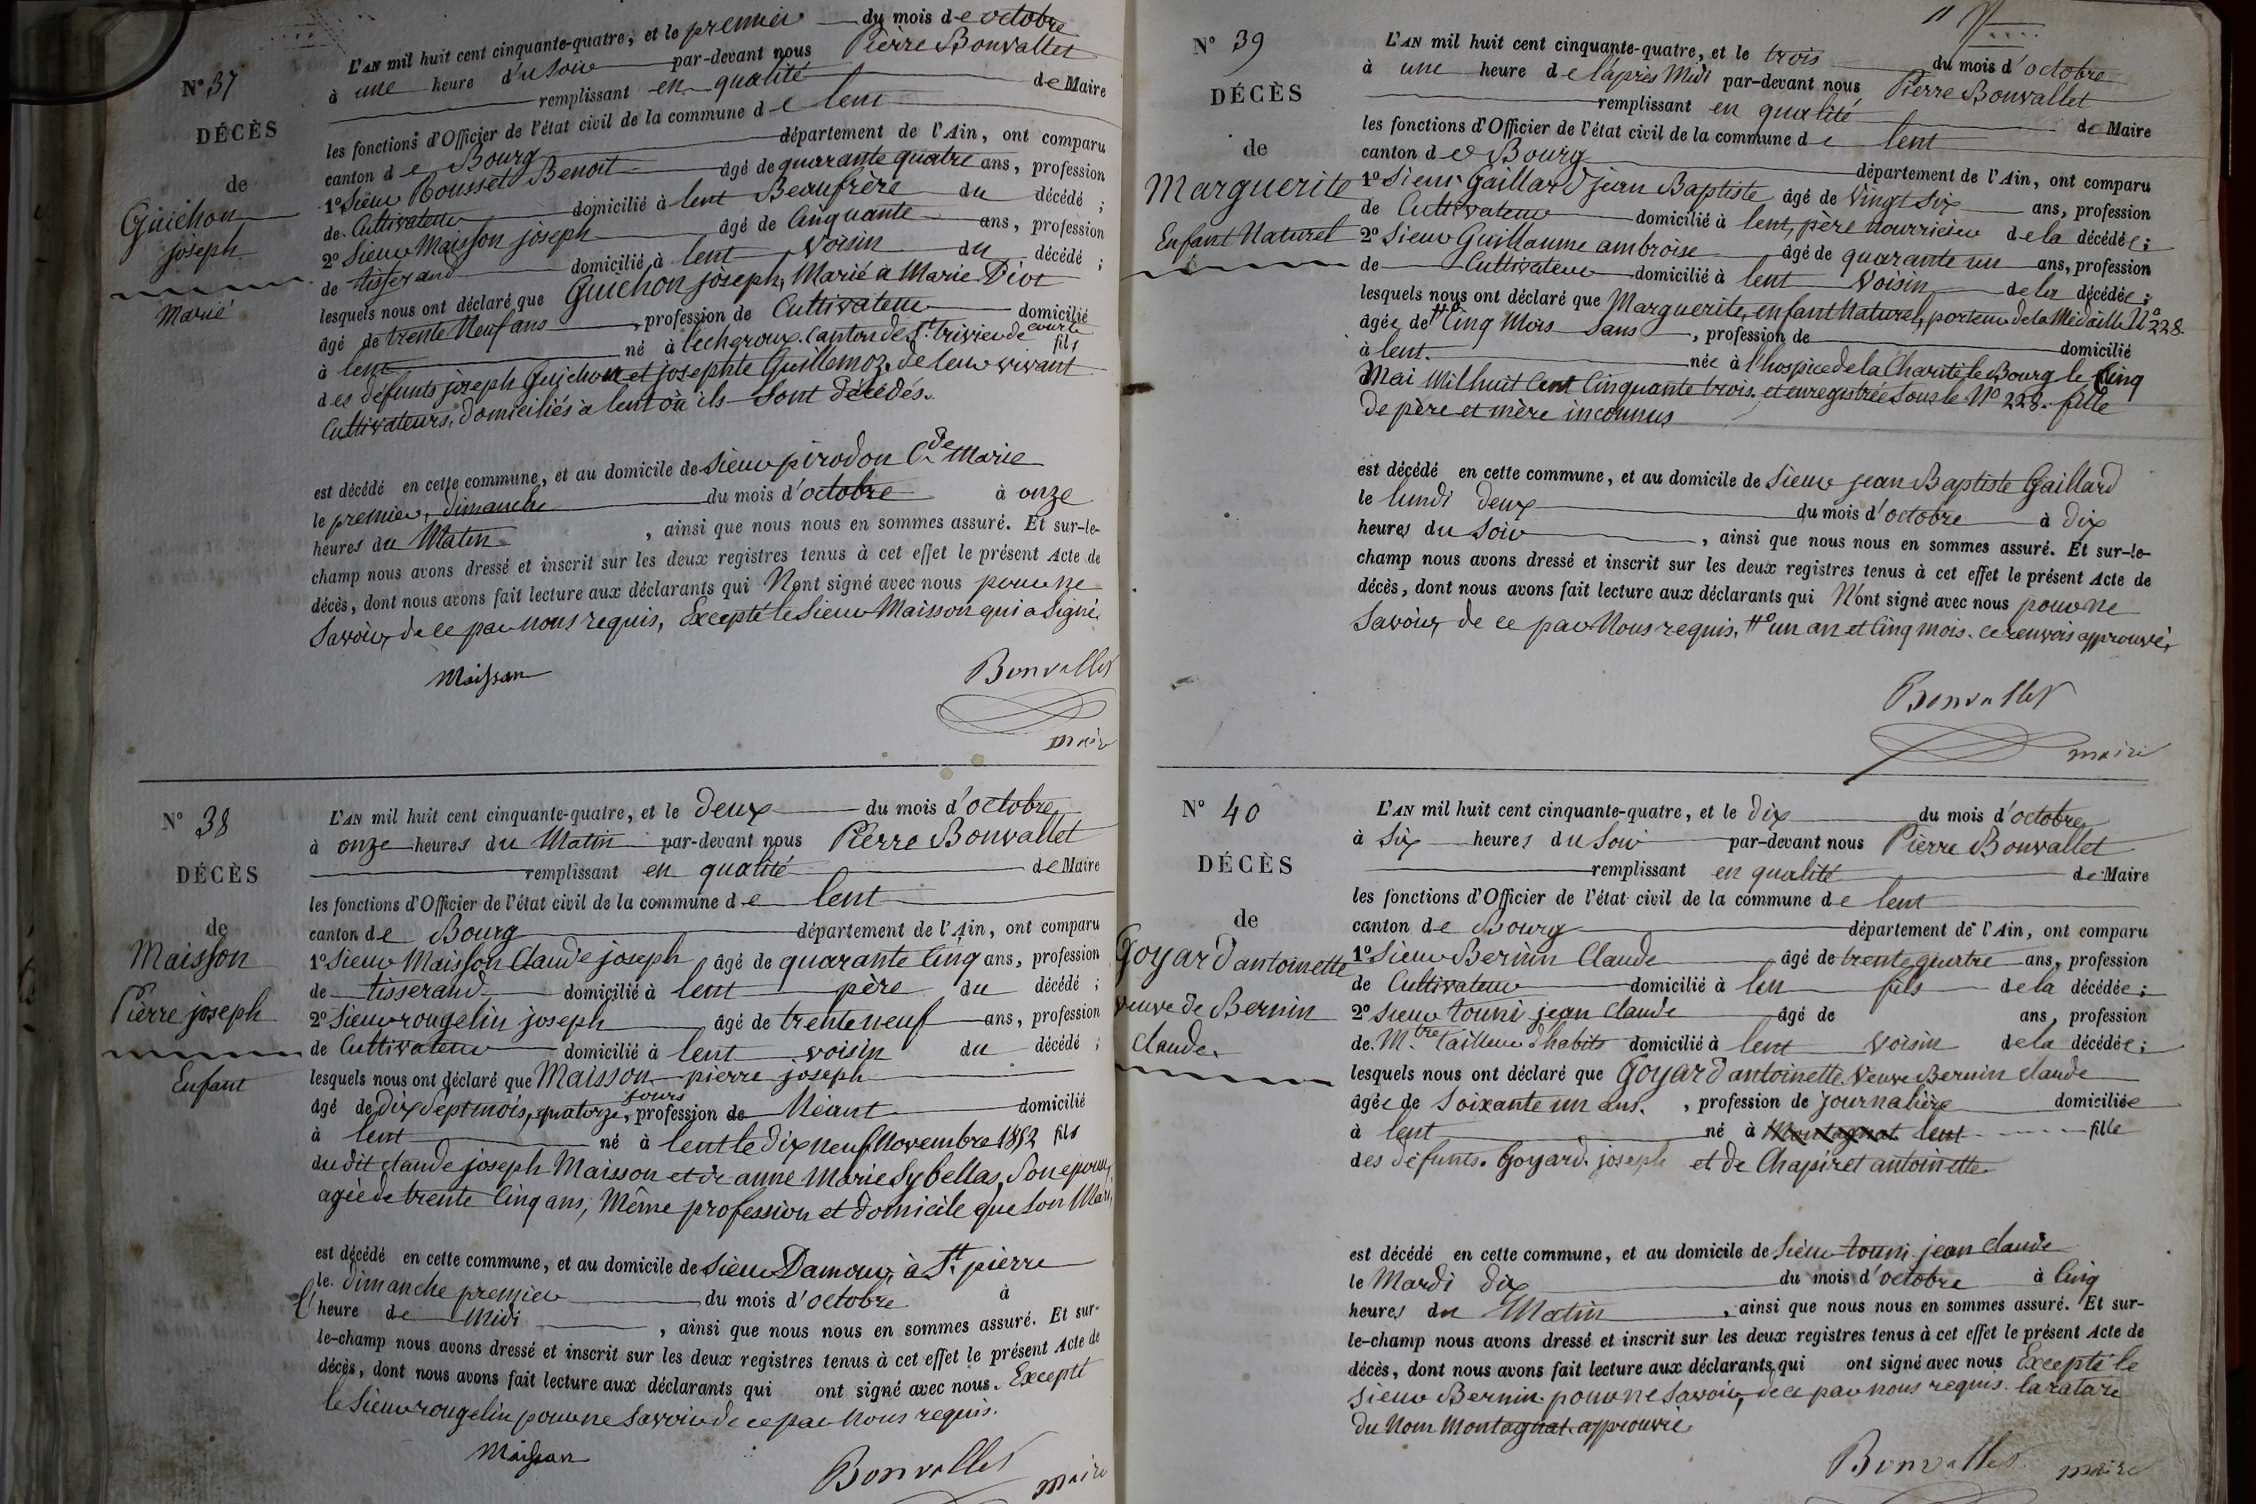 N° 37
DÉCÈS
de
Guichon
joseph
Marié
L'AN mil huit cent cinquante-quatre, et le premier du mois de octobre
à une heure du Soir par-devant nous Pierre Bonvallet
remplissant en qualité de Maire
les fonctions d'Officier de l'état civil de la commune de lent
canton de Bourg département de l'Ain, ont comparu
1° Sieur Rousset Benoit âgé de quarante quatre ans, profession
de Cultivateur domicilié à lent Beaufrère du décédé ;
2° Sieur Maisson joseph âgé de Cinquante ans, profession
de tisserand domicilié à lent voisin du décédé ;
lesquels nous ont déclaré que Guichon joseph, Marié à Marie Diot
âgé de trente Neuf ans, profession de Cultivateur domicilié
à lent né à lechèroux. Canton de St. trivier de courte fils
des défunts joseph Guichon et josephte Guillemoz. de leur vivant
Cultivateurs, domiciliés à lent où ils Sont décédés.
est décédé en cette commune, et au domicile de Sieur pirodon Cde Marie
le premier, dimanche du mois d'octobre à onze
heures du Matin, ainsi que nous nous en sommes assuré. Et sur-le-
champ nous avons dressé et inscrit sur les deux registres tenus à cet effet le présent Acte de
décès, dont nous avons fait lecture aux déclarants qui N'ont signé avec nous pour ne
Savoir, de ce par nous requis, Excepté le Sieur Maisson qui a Signé.
Maisson
Bonvallet
maire
N° 38
DÉCÈS
de
Maisson
Pierre joseph
Enfant
L'AN mil huit cent cinquante-quatre, et le deux du mois d'octobre
à onze heures du Matin par-devant nous Pierre Bonvallet
remplissant en qualité de Maire
les fonctions d'Officier de l'état civil de la commune de lent
canton de Bourg département de l'Ain, ont comparu
1° Sieur Maisson Claude joseph âgé de quarante Cinq ans, profession
de tisserand domicilié à lent père du décédé ;
2° Sieur rougelin joseph âgé de trente neuf ans, profession
de Cultivateur domicilié à lent voisin du décédé ;
lesquels nous ont déclaré que Maisson pierre joseph
âgé de dix sept mois, quatorze jours, profession de Néant domicilié
à lent né à lent le dix neuf Novembre 1852 fils
du dit claude joseph Maisson et de anne Marie Sybellas, Son epouse
agée de trente Cinq ans, Même profession et domicile que Son Mari,
est décédé en cette commune, et au domicile de Sieur Damour, à St. pierre
le dimanche premier du mois d'octobre à
l'heure de Midi, ainsi que nous nous en sommes assuré. Et sur-
le-champ nous avons dressé et inscrit sur les deux registres tenus à cet effet le présent Acte de
décès, dont nous avons fait lecture aux déclarants qui ont signé avec nous. Excepté
le Sieur rougelin pour ne Savoir de ce par Nous requis.
Maisson
Bonvallet maire
N° 39
DÉCÈS
de
Marguerite
Enfant Naturel
L'AN mil huit cent cinquante-quatre, et le trois du mois d'octobre
à une heure de l'après Midi par-devant nous Pierre Bonvallet
remplissant en qualité de Maire
les fonctions d'Officier de l'état civil de la commune de lent
canton de Bourg département de l'Ain, ont comparu
1° Sieur Gaillard jean Baptiste âgé de Vingt Six ans, profession
de Cultivateur domicilié à lent, père nourricier de la décédée ;
2° Sieur Guillaume ambroise âgé de quarante un ans, profession
de Cultivateur domicilié à lent Voisin de la décédée ;
lesquels nous ont déclaré que Marguerite, enfant Naturel, porteur de la Médaille N° 228.
âgée de Cinq Mois Sans, profession de domicilié
à lent. née à l'hospice de la Charité le Bourg le Cinq
Mai Mil huit Cent Cinquante trois. et enregistrée Sous le N° 228. fille
de père et mère inconnus
est décédé en cette commune, et au domicile de Sieur jean Baptiste Gaillard
le lundi deux du mois d'octobre à dix
heures du Soir, ainsi que nous nous en sommes assuré. Et sur-le-
champ nous avons dressé et inscrit sur les deux registres tenus à cet effet le présent Acte de
décès, dont nous avons fait lecture aux déclarants qui N'ont signé avec nous pour ne
Savoir, de ce par Nous requis, un an et Cinq mois. ce renvois approuvé,
Bonvallet
maire
N° 40
DÉCÈS
de
Goyard antoinette
veuve de Bernin
claude.
L'AN mil huit cent cinquante-quatre, et le dix du mois d'octobre
à Six heures du Soir par-devant nous Pierre Bonvallet
remplissant en qualité de Maire
les fonctions d'Officier de l'état civil de la commune de lent
canton de Bourg département de l'Ain, ont comparu
1° Sieur Bernin Claude âgé de trente quatre ans, profession
de Cultivateur domicilié à len fils de la décédée ;
2° Sieur touni jean Claude âgé de ans, profession
de Mtre tailleur d'habits domicilié à lent Voisin de la décédée ;
lesquels nous ont déclaré que Goyard antoinette Veuve Bernin claude
âgée de Soixante un ans., profession de journalière domiciliée
à lent né à Montagnat lent fille
des défunts. Goyard. joseph et de Chapiret antoinette
est décédé en cette commune, et au domicile de Sieur touni jean claude
le Mardi dix du mois d'octobre à Cinq
heures du Matin, ainsi que nous nous en sommes assuré. Et sur-
le-champ nous avons dressé et inscrit sur les deux registres tenus à cet effet le présent Acte de
décès, dont nous avons fait lecture aux déclarants qui ont signé avec nous Excepté le
Sieur Bernin pour ne Savoir, de ce par nous requis. la rature
du Nom Montagnat approuvée
Bonvallet maire